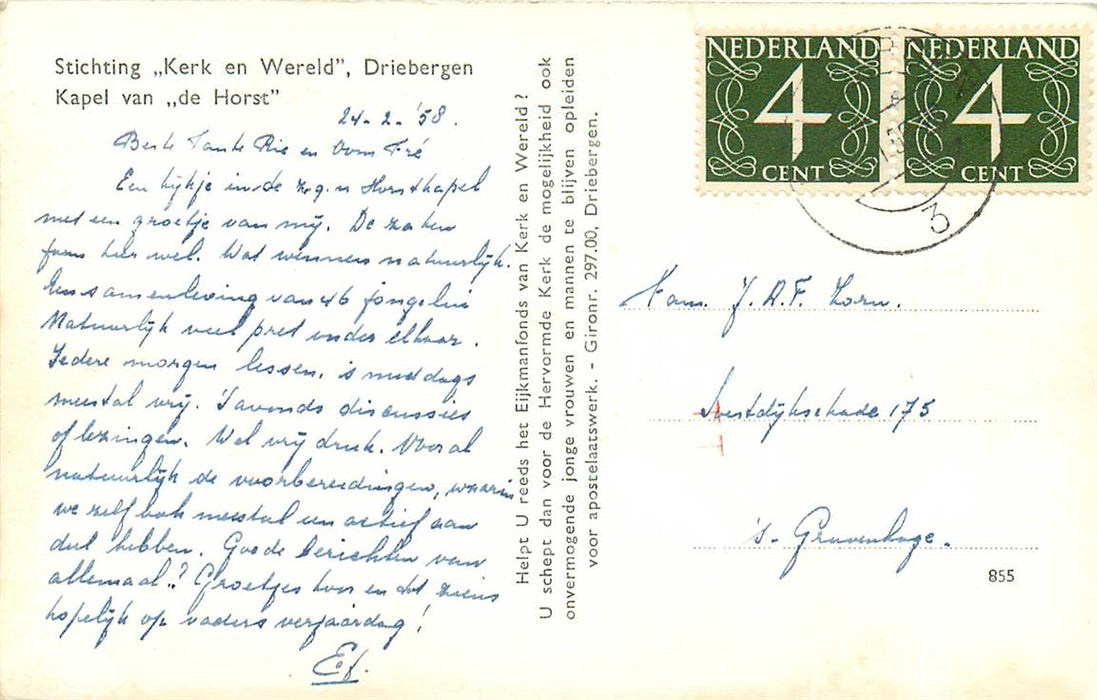 Stichting „Kerk en Wereld”, Driebergen
Kapel van „de Horst”
24-2-'58.
Beste Tante Rie en Oom Fré
Een kijkje in de z.g.n Horstkapel
met een groetje van mij. De zaken
gaan hier wel. Wat wennen natuurlijk.
Een samenleving van 46 jongelui
Natuurlijk veel pret onder elkaar.
Iedere morgen lessen, 's middags
meestal vrij. 's avonds discussies
of lezingen. Wel vrij druk. Vooral
natuurlijk de voorbereidingen, waarin
we zelf ook meestal een actief aan
deel hebben. Goede berichten van
allemaal? Groetjes hoor en tot ziens
hopelijk op vaders verjaardag!
Ef.
Helpt U reeds het Eijkmanfonds van Kerk en Wereld?
U schept dan voor de Hervormde Kerk de mogelijkheid ook
onvermogende jonge vrouwen en mannen te blijven opleiden
voor apostelaatswerk. - Gironr. 297.00, Driebergen.
NEDERLAND
4
CENT
NEDERLAND
4
CENT
3
Fam. J. A. F. Zorn.
Soestdijksekade 175
's-Gravenhage.
855